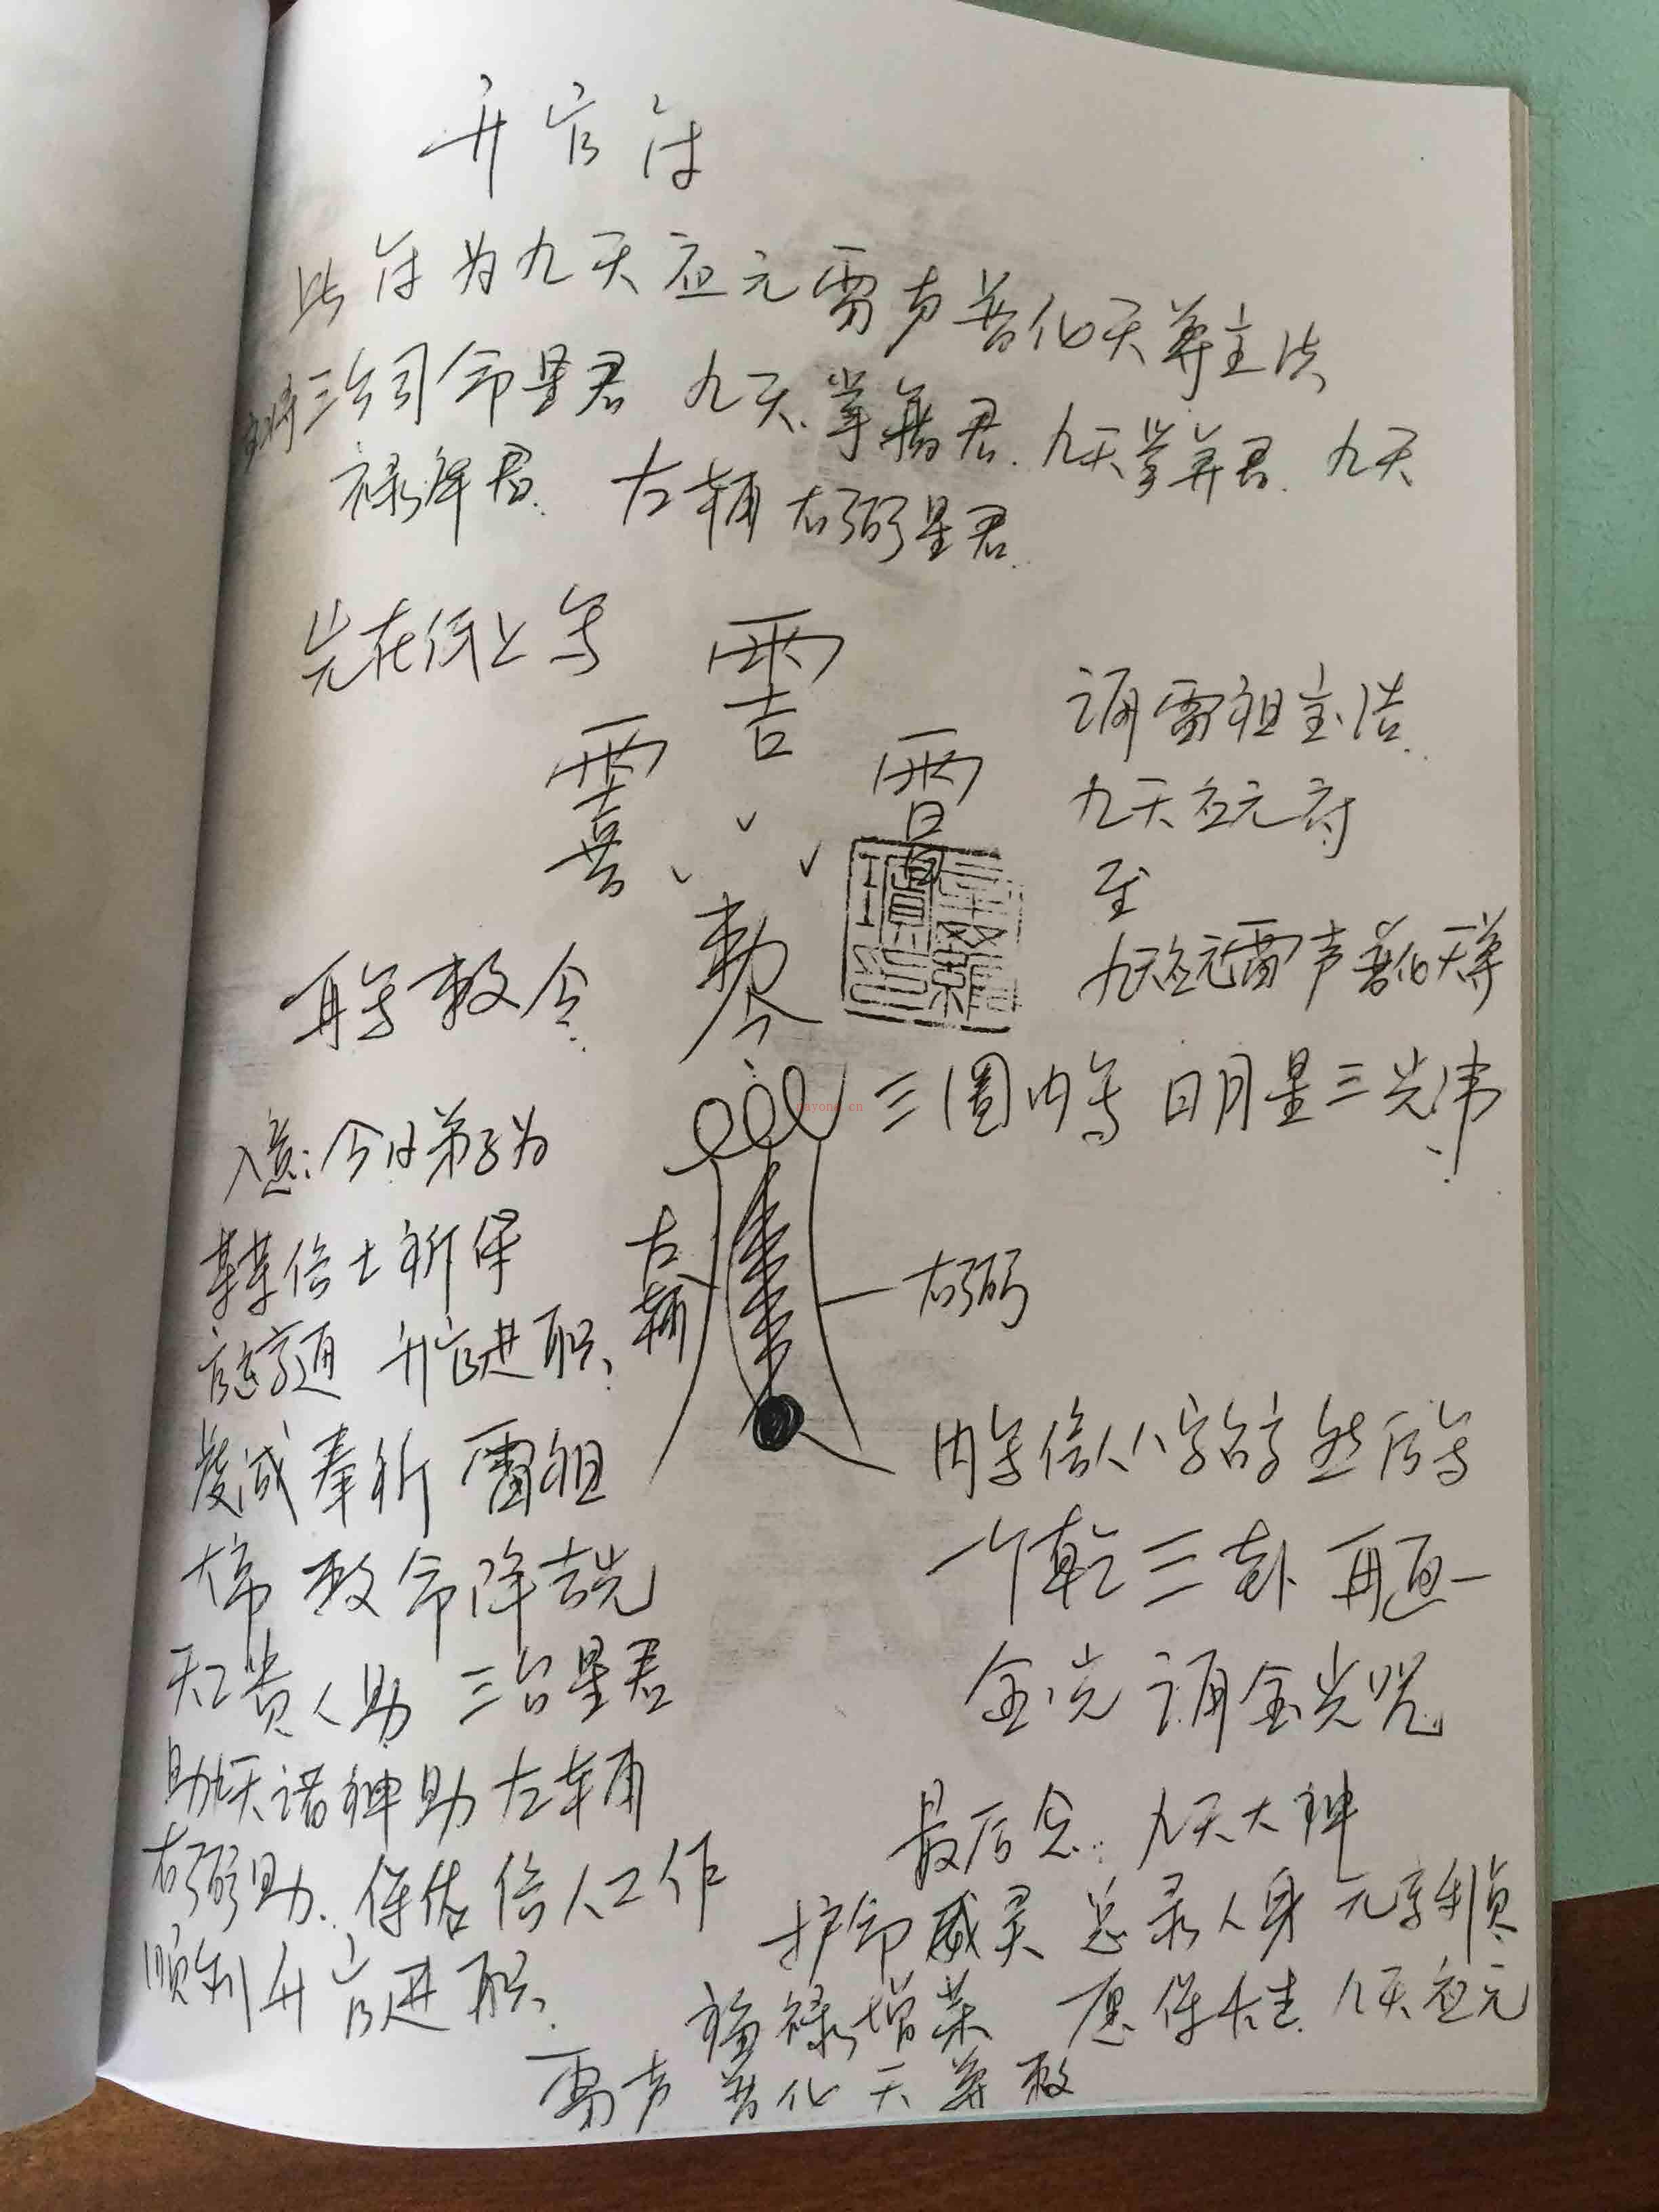 升官符
此符为九天应元雷声普化天尊主法
三台司命星君 九天掌籍君. 九天掌算君. 九天
禄库君. 左辅右弼星君.
先在纸上写
再写敕令.
敕令
诵雷祖宝诰.
九天应元府
至
九天应元雷声普化天尊
三圈内写 日月星三光讳.
左辅
右弼
内写信人八字名字 然后写
一个乾三卦 再画一
金光 诵金光咒
入意:今日弟子为
某某信士祈保
官运亨通 升官进职、
虔诚奉祈 雷祖
大帝 敕命降吉光
天之贵人助 三台星君
助九天诸神助左辅
右弼助. 保佑信人工作
顺利升官进职.
最后念: 九天大神
护命威灵 总录人身 元亨利贞
福禄增荣 愿保长生. 九天应元
雷声普化天尊敕